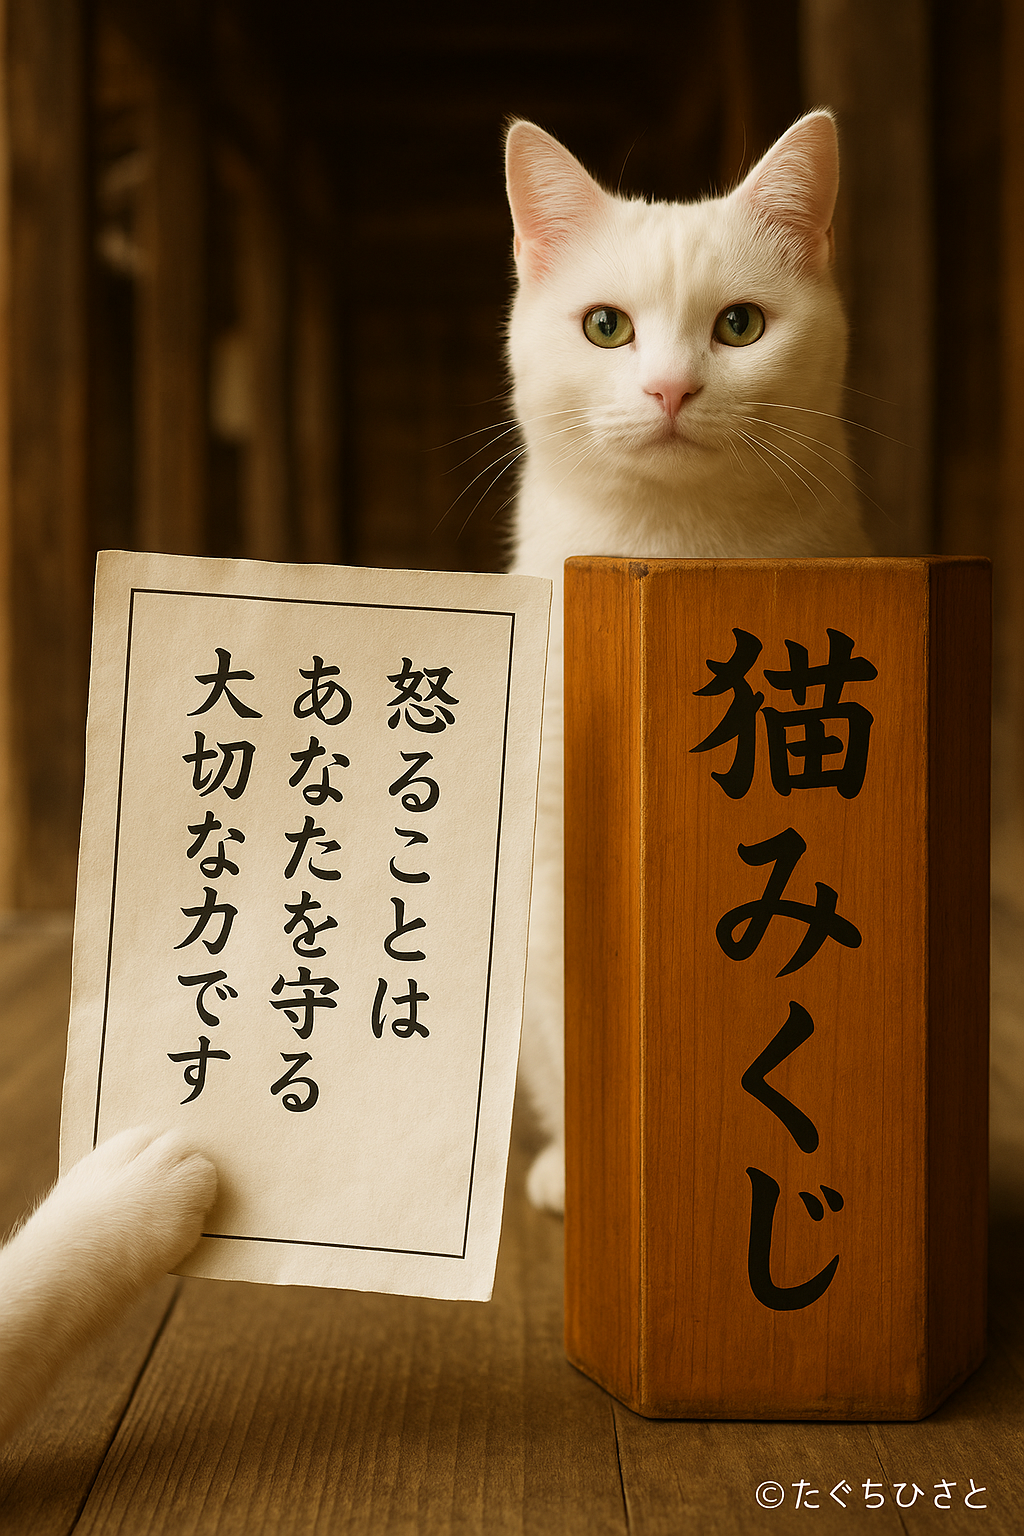 怒ることは
あなたを守る
大切な力です
猫みくじ
©たぐちひさと